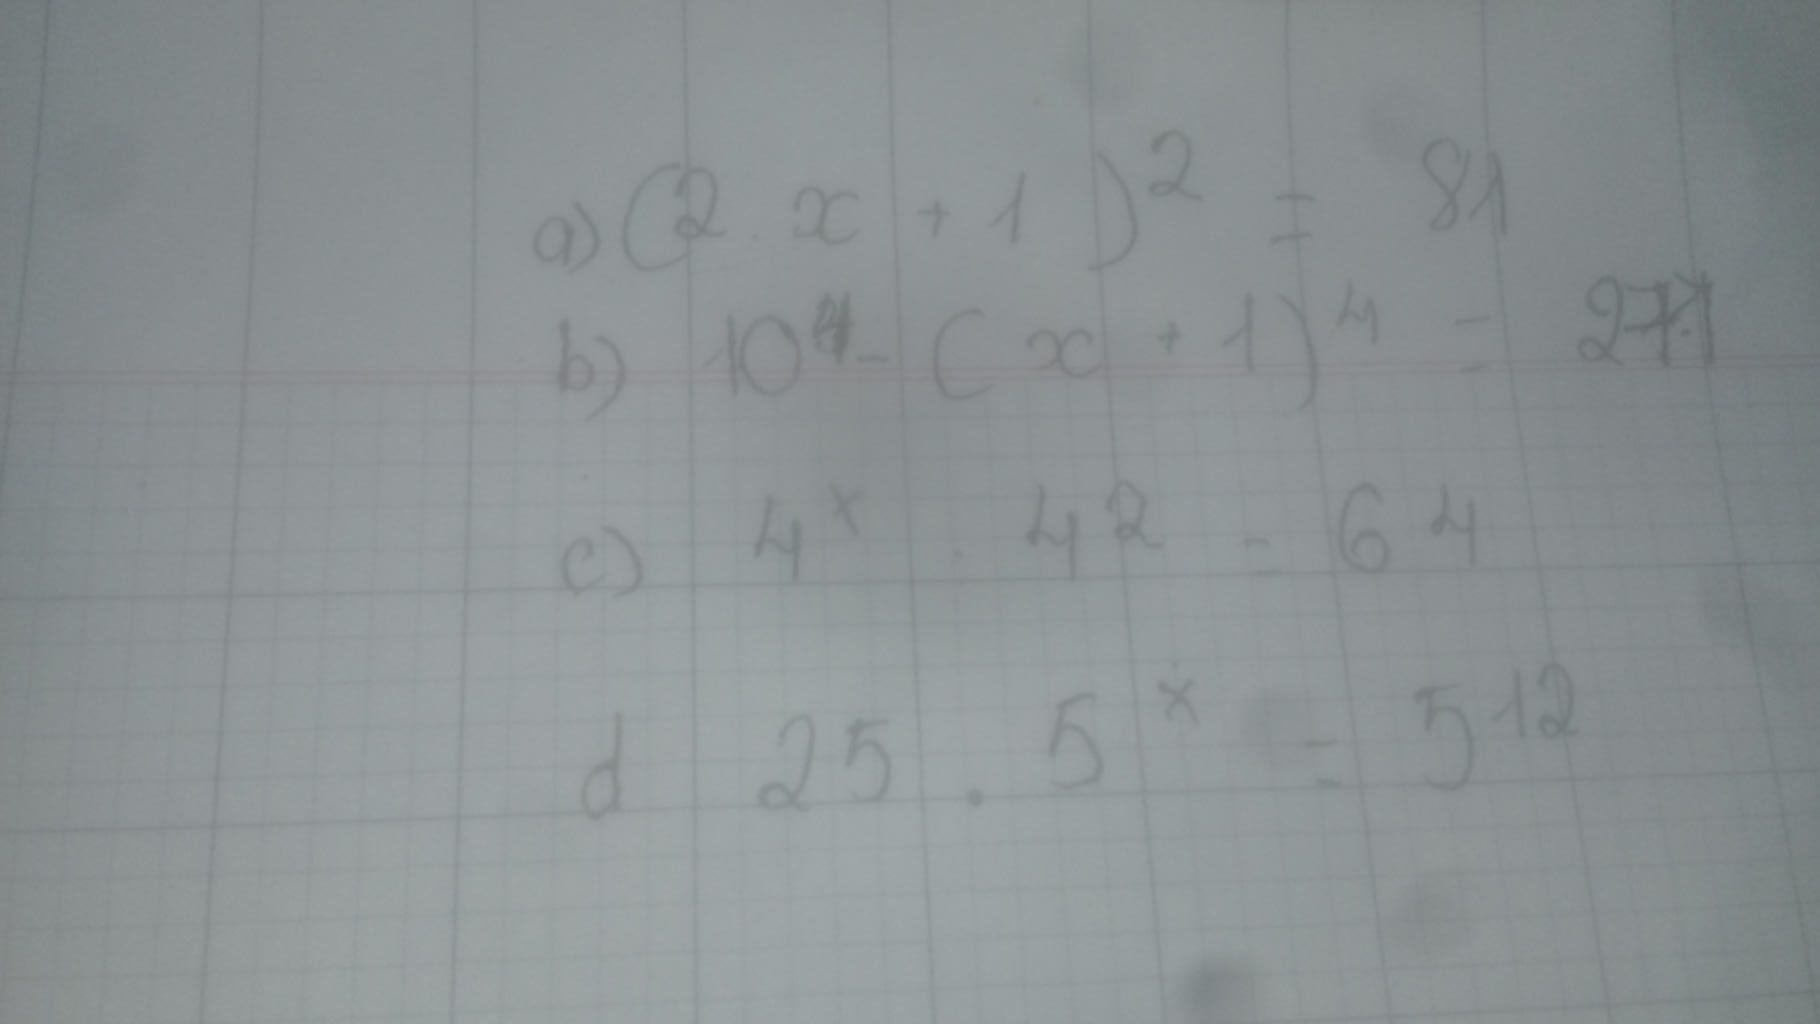 a) (2 . x + 1)² = 81
b) 10⁴ - (x + 1)⁴ =
c) 4ˣ . 4² = 64
d 25 . 5ˣ = 5¹²